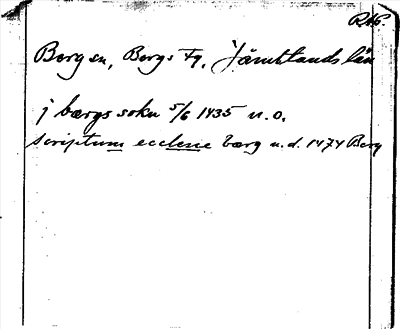 RAP.
Berg sn, Bergs tg, Jämtlands län
j bærgs sokn 5/6 1435 n.o.
scriptum ecclesie bærg u.d. 1474 Berg